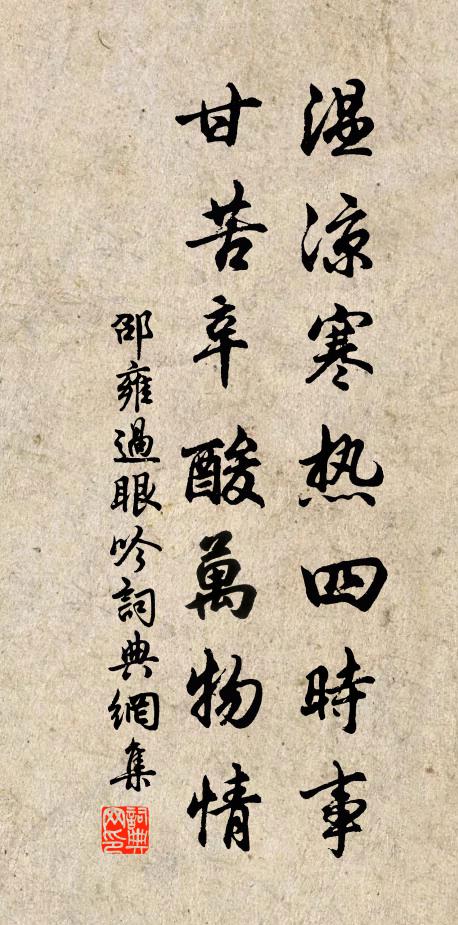 温凉寒热四時事
甘苦辛酸萬物情
邵雍過眼吟詞典網集
詞典網印